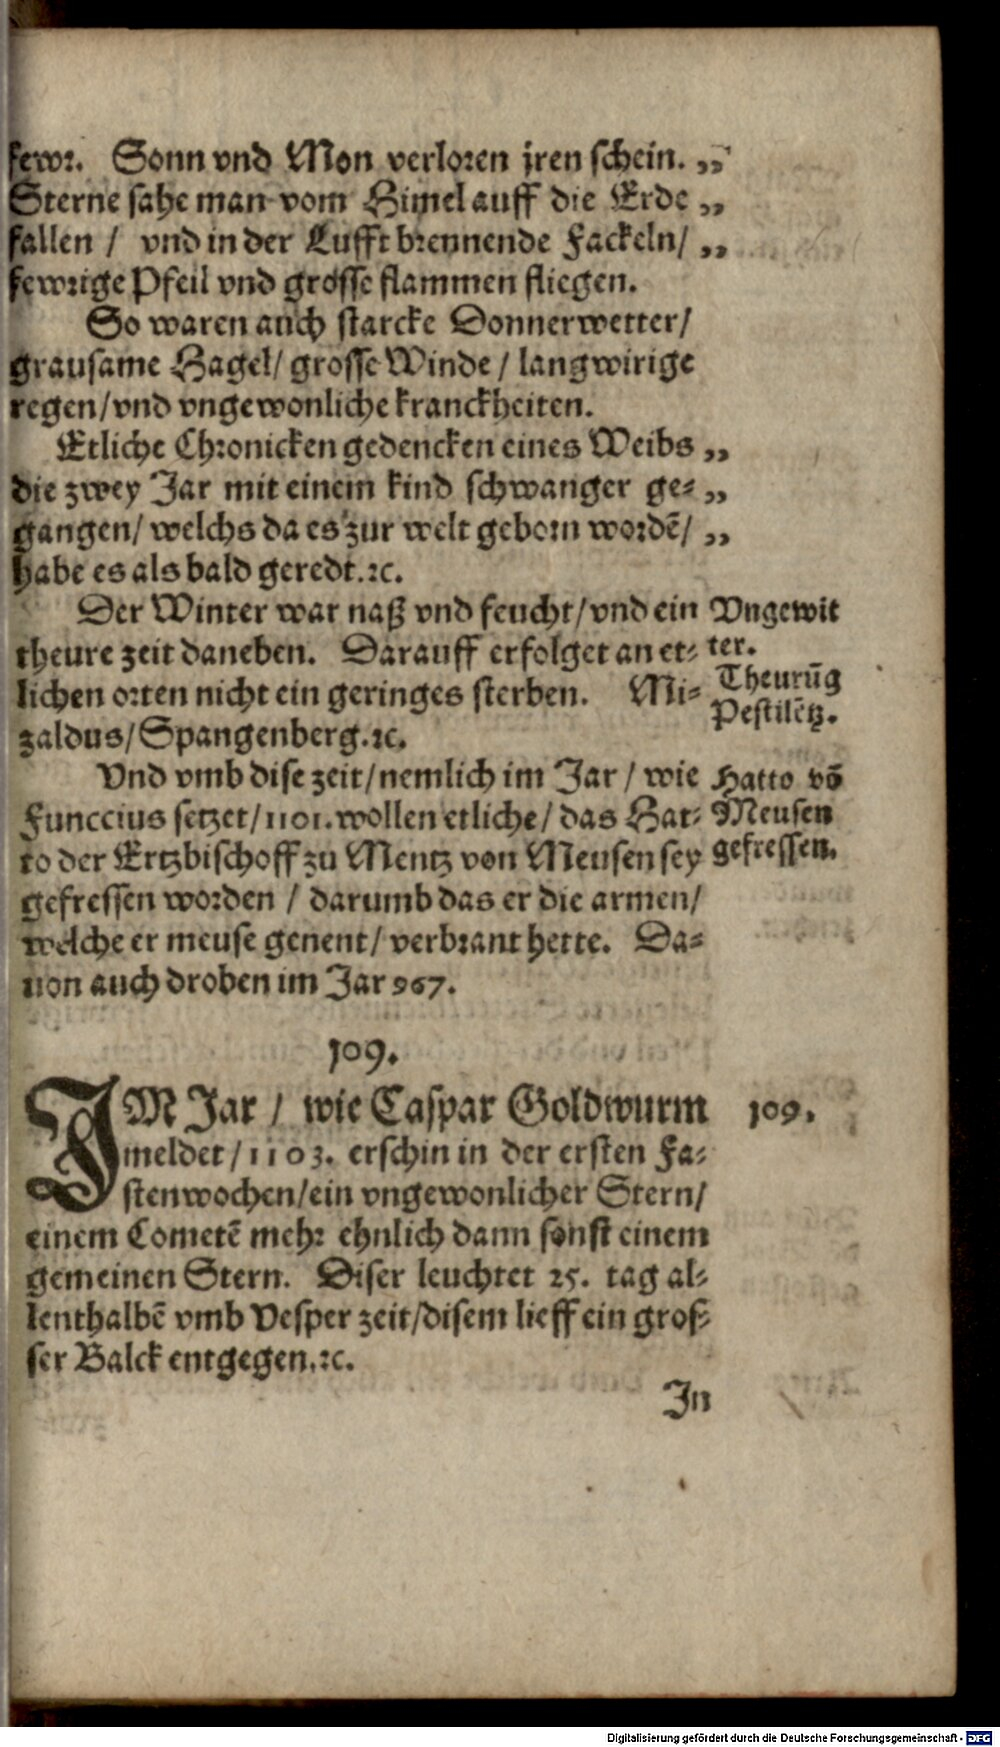 fewr. Sonn vnd Mon verloren jren schein. „
Sterne sahe man vom Himel auff die Erde „
fallen / vnd in der Lufft brennende Fackeln/ „
fewrige Pfeil vnd grosse flammen fliegen.
So waren auch starcke Donnerwetter/
grausame Hagel/ grosse Winde / langwirige
regen/vnd vngewonliche kranckheiten.
Etliche Chronicken gedencken eines Weibs „
die zwey Jar mit einem kind schwanger ge- „
gangen/ welchs da es zur welt geborn wordē/ „
habe es als bald geredt.ꝛc.
Der Winter war naß vnd feucht/vnd ein
theure zeit daneben. Darauff erfolget an et-
lichen orten nicht ein geringes sterben. Mi-
zaldus/Spangenberg.ꝛc.
Vngewit
ter.
Theurūg
Pestilētz.
Vnd vmb dise zeit/nemlich im Jar / wie
Funccius setzet/1101.wollen etliche/ das Hat-
to der Ertzbischoff zu Mentz von Meusen sey
gefressen worden / darumb das er die armen/
welche er meuse genent/ verbrant hette. Da-
uon auch droben im Jar 967.
Hatto vō
Meusen
gefressen.
109.
IM Jar / wie Caspar Goldwurm
meldet/1103. erschin in der ersten Fa-
stenwochen/ein vngewonlicher Stern/
einem Cometē mehr ehnlich dann sonst einem
gemeinen Stern. Diser leuchtet 25. tag al-
lenthalbē vmb Vesper zeit/disem lieff ein gros-
ser Balck entgegen.ꝛc.
109.
In
Digitalisierung gefördert durch die Deutsche Forschungsgemeinschaft - DFG